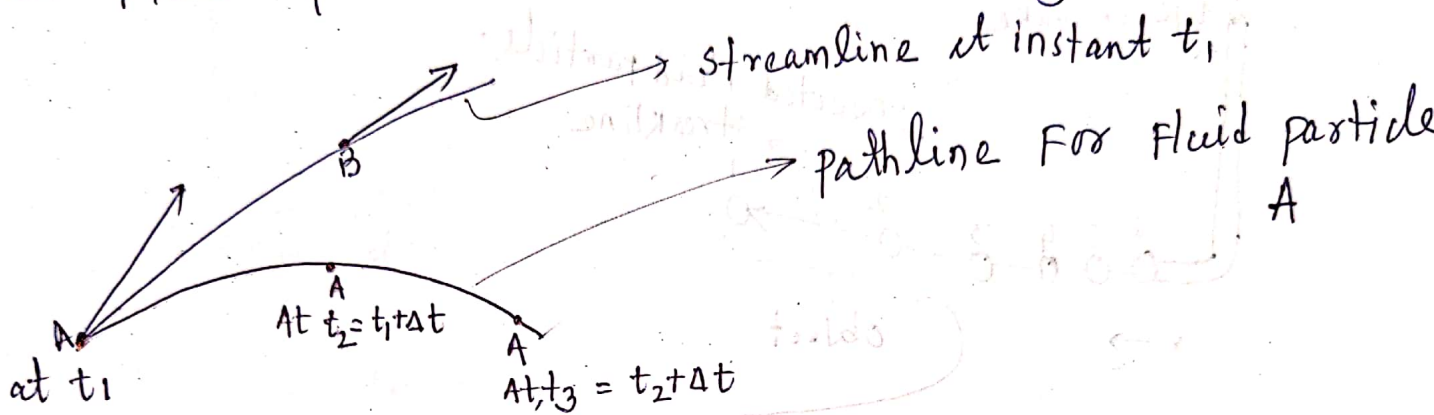 streamline at instant t₁
B
pathline For Fluid particle
A
A
at t1
A
At t₂ = t₁+Δt
A
At, t₃ = t₂+Δt